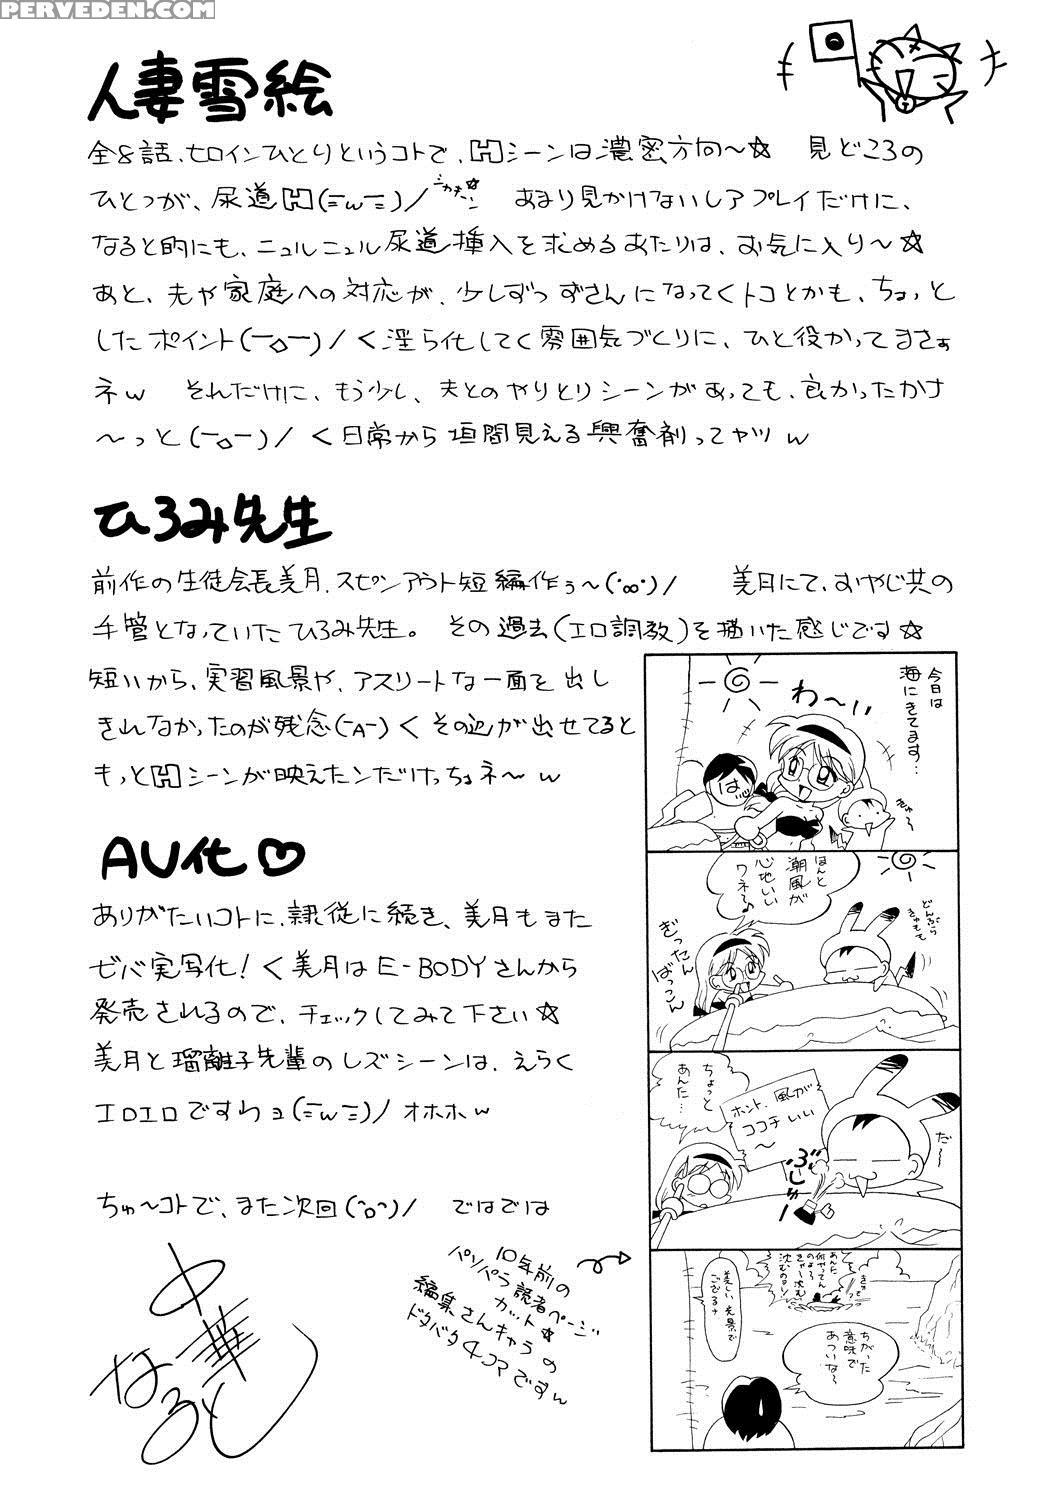 PERVEDEN.COM
人妻雪絵
全8話、ヒロインひとりというコトで、Hシーンは濃密方向〜☆ 見どころの
ひとつが、尿道H(ΞwΞ)/ あまり見かけないレアプレイだけに、
なると的にも、ニュルニュル尿道挿入を求めるあたりは、お気に入り〜☆
あと、夫や家庭への対応が、少しずつずさんになってくトコとかも、ちょっと
したポイント(ー△ー)/く淫ら化してく雰囲気づくりに、ひと役かってまさぁ
ネw それだけに、もう少し、夫とのやりとりシーンがあっても、良かったかナ
〜っと(ー△ー)/く日常から垣間見える興奮剤ってヤツw
ひろみ先生
前作の生徒会長美月、スピンアウト短編作ぅ〜(・∞・)/ 美月にて、おやじ共の
手管となっていたひろみ先生。その過去(エロ調教)を描いた感じです☆
短いから、実習風景や、アスリートな一面を出し
きれなかったのが残念(ーAー)くその辺が出せてると
もっとHシーンが映えたンだけっちょネ〜w
AV化♡
ありがたいコトに、隷従に続き、美月もまた
ゼバ実写化!く美月はE-BODYさんから
発売されるので、チェックしてみて下さい☆
美月と瑠離子先輩のレズシーンは、えらく
エロエロですわョ(ΞwΞ)/オホホw
ちゅ〜コトで、また次回(^o^)/ ではでは
中華
なると
10年前の
パソパラ読者ページ
カット☆
編集さんキャラの
ドタバタ4コマですw
今日は
海にきてます…
わ〜い
はい
きゅ〜
ほんと
潮風が
心地いい
ワネ〜♪
どんぶら
ぎったん
ばっこん
ちょっと
あんた…
ホント、風が
ココチいい
〜
だ〜
ぶしゅー!
あんた
何やってん
のよ〜
きゃー沈む
沈むのヨン
美しい光景で
ござるナ
ちがった
意味で
あついな〜